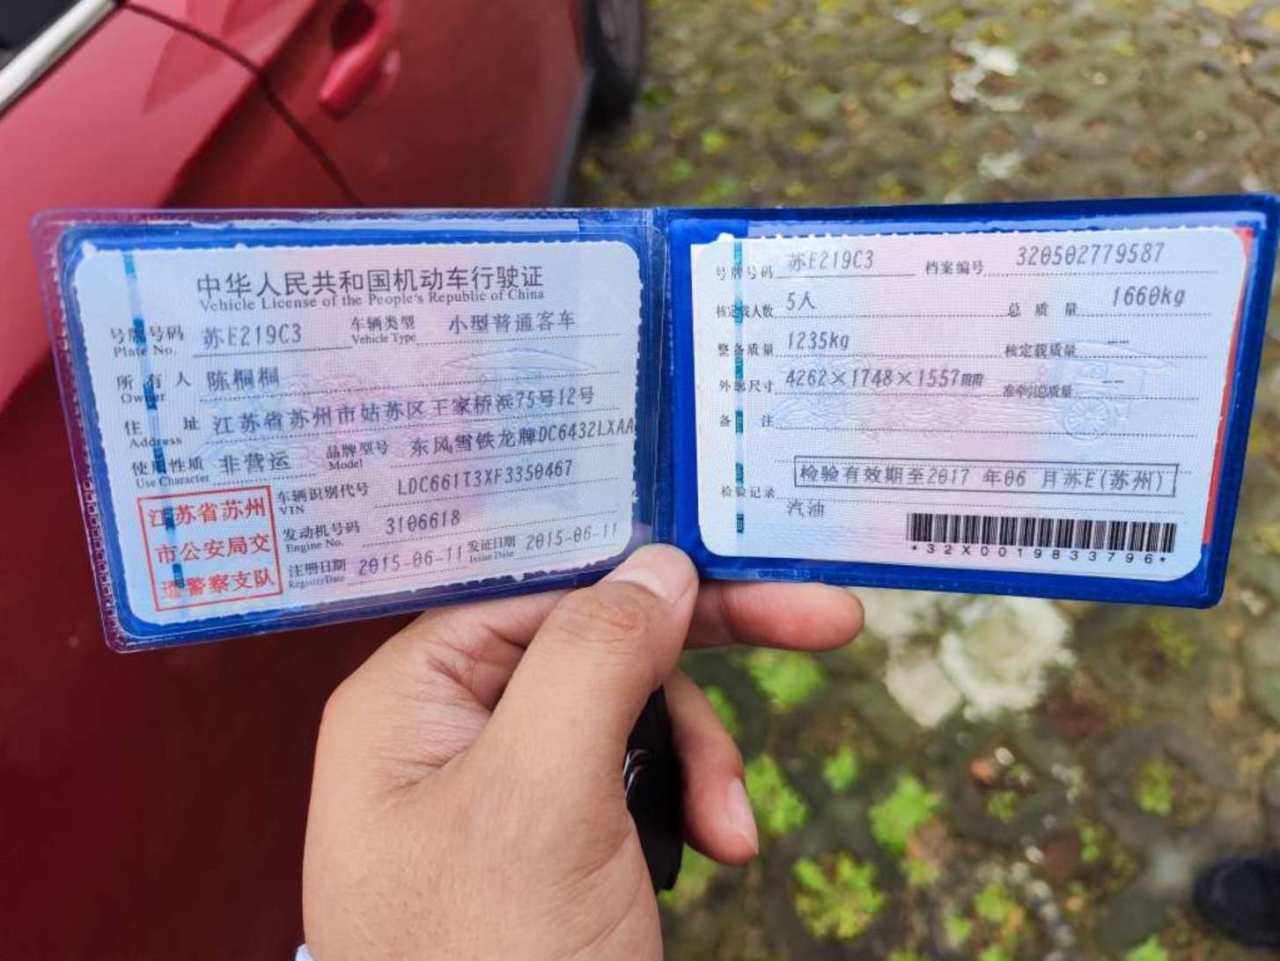 中华人民共和国机动车行驶证
Vehicle License of the People's Republic of China
号牌号码 苏E219C3 车辆类型 小型普通客车
Plate No. Vehicle Type
所有人 陈桐桐
Owner
住址 江苏省苏州市姑苏区王家桥浜75号12号
Address
使用性质 非营运 品牌型号 东风雪铁龙牌DC6432LXAA
Use Character Model
江苏省苏州
市公安局交
通警察支队
车辆识别代号 LDC661T3XF3350467
VIN
发动机号码 3106618
Engine No.
注册日期 2015-06-11 发证日期 2015-06-11
Register Date Issue Date
号牌号码 苏E219C3 档案编号 320502779587
核定载人数 5人 总质量 1660kg
整备质量 1235kg 核定载质量 --
外廓尺寸 4262×1748×1557mm 准牵引总质量 --
备注
检验有效期至2017 年06 月苏E(苏州)
检验记录
汽油
*32X0019833796*